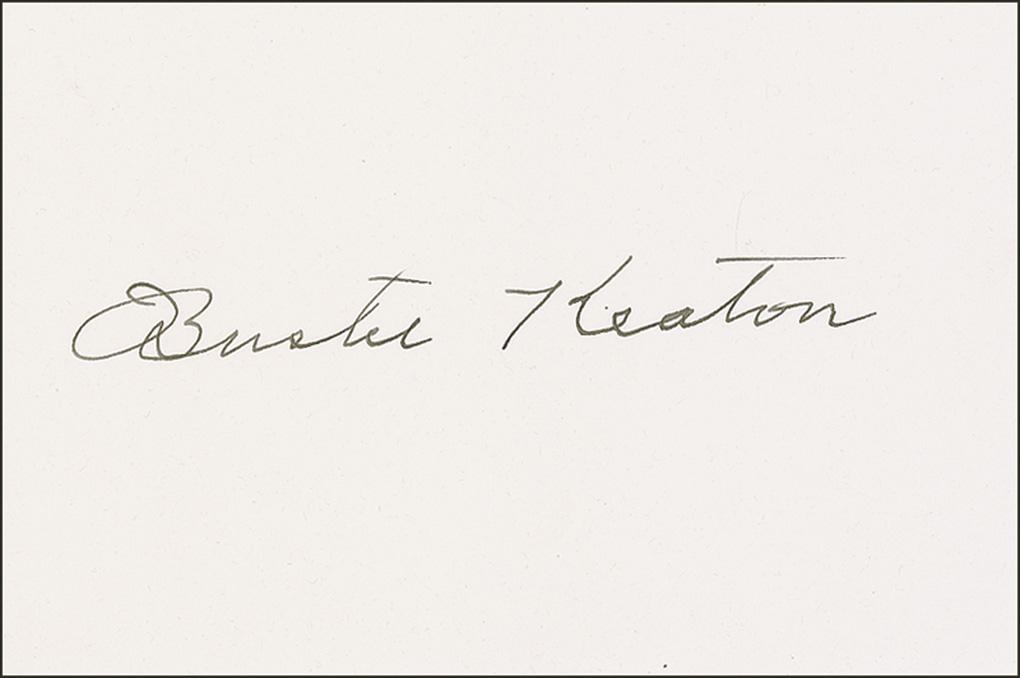 Buster Keaton